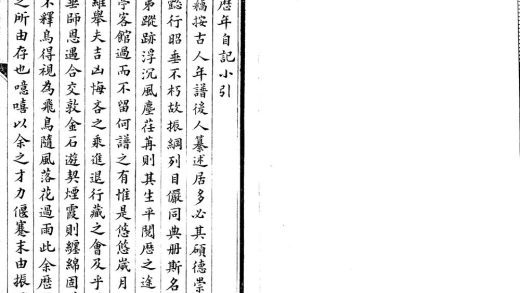 歷年自記小引
竊按古人年譜後人纂述居多必其碩德崇
懿行昭垂不朽故振綱列目儼同典册斯名
第蹤跡浮沉風塵荏苒則其生平閱歷之途
亭客館過而不留何譜之有惟是悠悠歲月
維舉夫吉凶悔吝之乘進退行藏之會及乎
垂師恩遇合交敦金石遊契煙霞則纏綿固
不釋烏得視為飛鳥隨風落花過雨此余歷
之所由存也噫嘻以余之才力偃蹇末由振